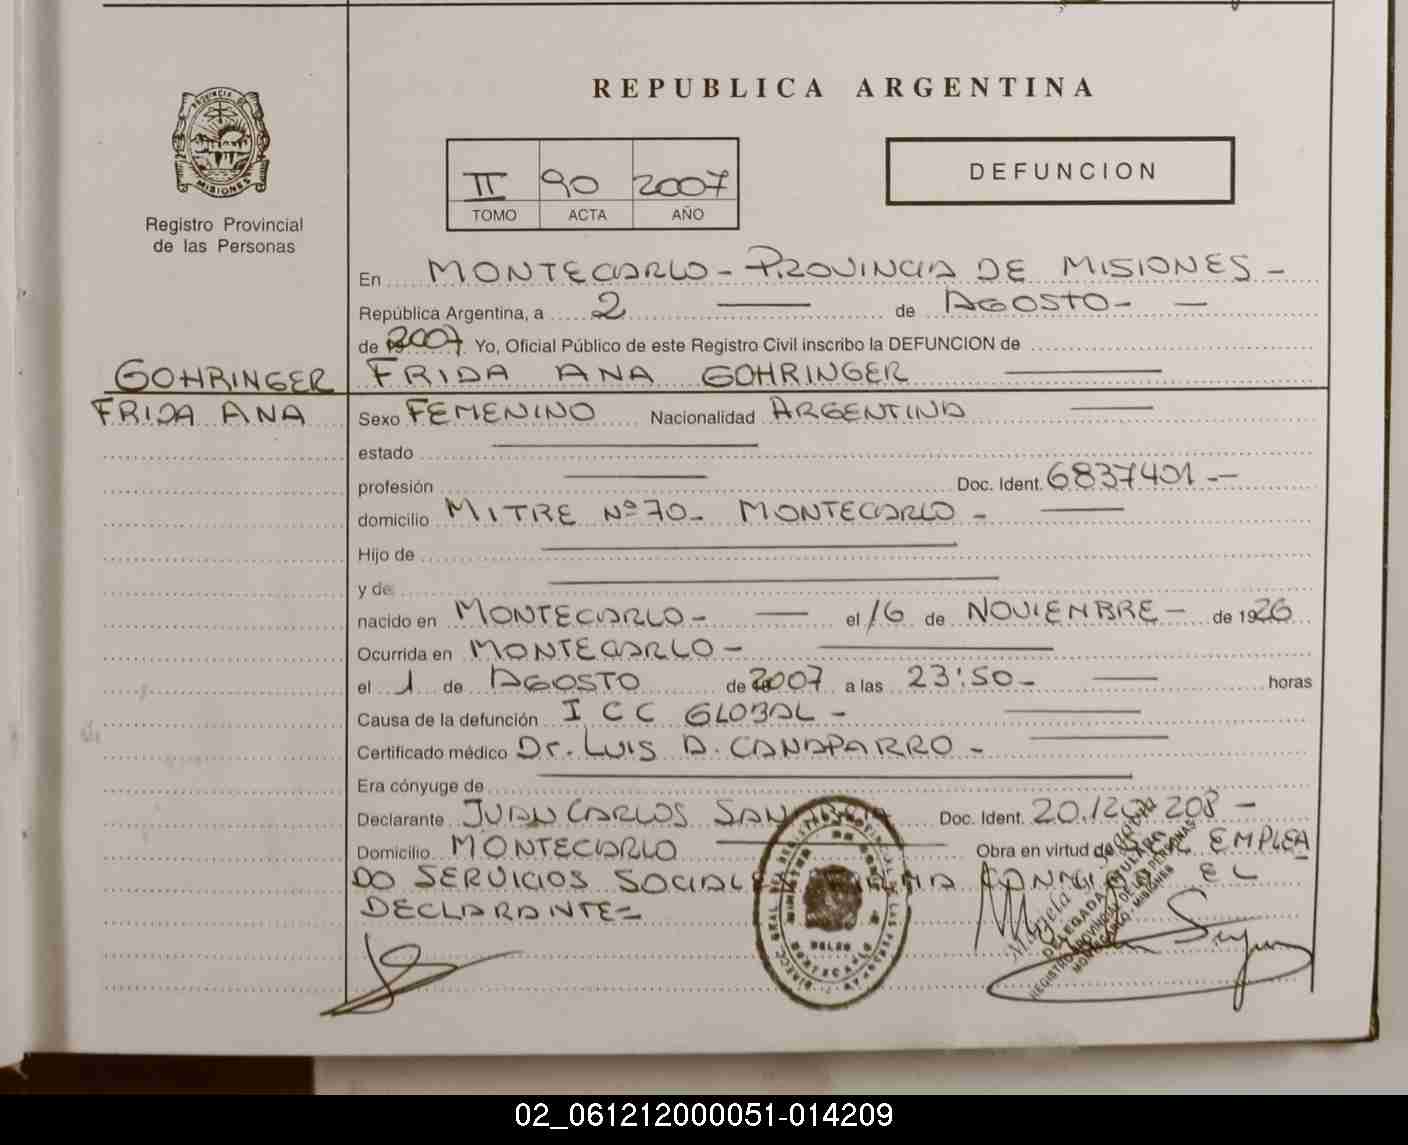 REPUBLICA ARGENTINA
PROVINCIA DE
MISIONES
Registro Provincial
de las Personas
II 90 2007
TOMO ACTA AÑO
DEFUNCION
En MONTECARLO - PROVINCIA DE MISIONES -
República Argentina, a 2 de AGOSTO -
de 2007 Yo, Oficial Público de este Registro Civil inscribo la DEFUNCION de
GOHRINGER FRIDA ANA GOHRINGER
FRIDA ANA Sexo FEMENINO Nacionalidad ARGENTINA
estado
profesión Doc. Ident. 6837401 -
domicilio MITRE Nº 70 - MONTECARLO -
Hijo de
y de
nacido en MONTECARLO - el 16 de NOVIEMBRE - de 1926
Ocurrida en MONTECARLO -
el 1 de AGOSTO de 2007 a las 23:50 - horas
Causa de la defunción I C C GLOBAL -
Certificado médico Dr. LUIS A. CANAPARRO -
Era cónyuge de
Declarante JUAN CARLOS Doc. Ident. 20.120.208 -
Domicilio MONTECARLO Obra en virtud de EMPLEA
DO SERVICIOS SOCIALES EL
DECLARANTE -
DELEGADA TITULAR
REGISTRO PROVINCIAL DE LAS PERSONAS
MONTECARLO - MISIONES
02_061212000051-014209